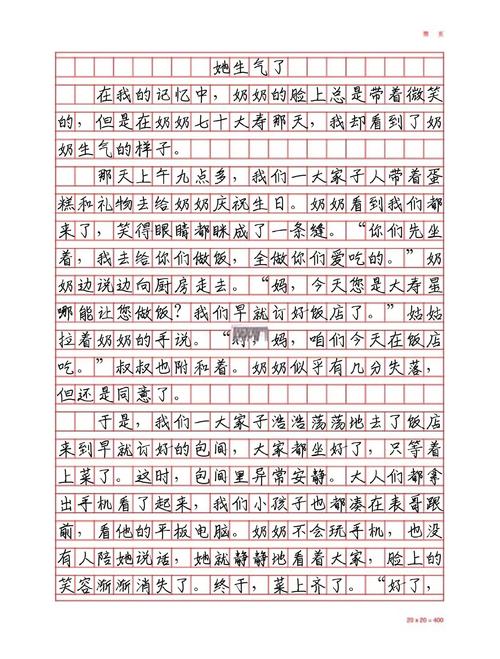 她生气了
在我的记忆中，奶奶的脸上总是带着微笑
的，但是在奶奶七十大寿那天，我却看到了奶
奶生气的样子。
那天上午九点多，我们一大家子人带着蛋
糕和礼物去给奶奶庆祝生日。奶奶看到我们都
来了，笑得眼睛都眯成了一条缝。“你们先坐
着，我去给你们做饭，全做你们爱吃的。”奶
奶边说边向厨房走去。“妈，今天您是大寿星
哪能让您做饭？我们早就订好饭店了。”姑姑
拉着奶奶的手说。“妈，咱们今天在饭店
吃。”叔叔也附和着。奶奶似乎有几分失落，
但还是同意了。
于是，我们一大家子浩浩荡荡地去了饭店
来到早就订好的包间，大家都坐好了，只等着
上菜了。这时，包间里异常安静。大人们都拿
出手机看了起来，我们小孩子也都凑在表哥跟
前，看他的平板电脑。奶奶不会玩手机，也没
有人陪她说话，她就静静地看着大家，脸上的
笑容渐渐消失了。终于，菜上齐了。“好了，
20×20=400